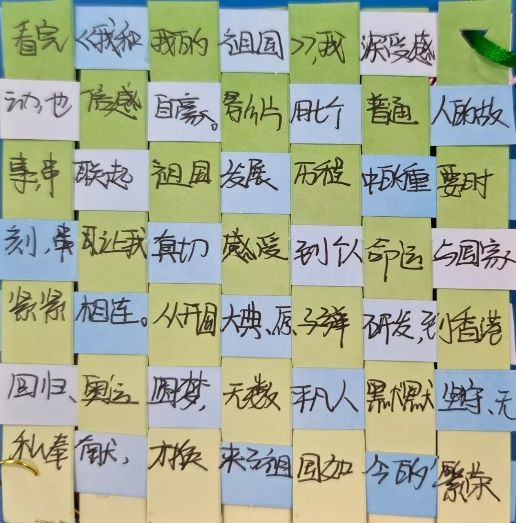 看完《我和我的祖国》,我深受感
动,也倍感自豪。影片用七个普通人的故
事,串联起祖国发展历程中的重要时
刻,让我真切感受到个人命运与国家
紧紧相连。从开国大典、原子弹研发,到香港
回归、奥运圆梦,无数平凡人默默坚守、无
私奉献,才换来了祖国如今的繁荣